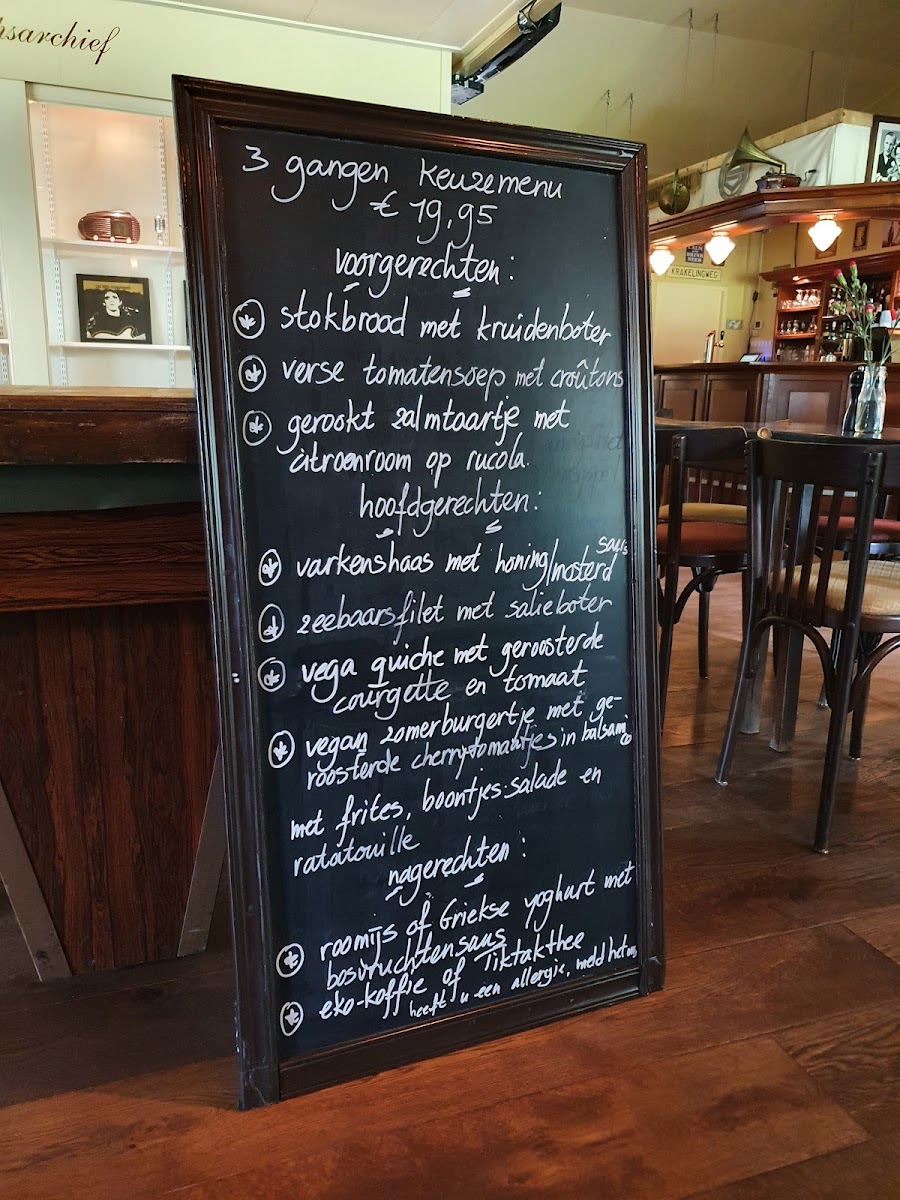 hsarchief
3 gangen keuzemenu
€ 19,95
voorgerechten:
stokbrood met kruidenboter
verse tomatensoep met croûtons
gerookt zalmtaartje met
citroenroom op rucola.
hoofdgerechten:
varkenshaas met honing/mosterd saus
zeebaarsfilet met salieboter
vega quiche met geroosterde
courgette en tomaat
vegan zomerburgertje met ge-
roosterde cherrytomaatjes in balsamico
met frites, boontjes-salade en
ratatouille
nagerechten:
roomijs of Griekse yoghurt met
bosvruchtensaus
eko-koffie of Tiktakthee
heeft u een allergie, meld het ons
KRAKELINGWEG